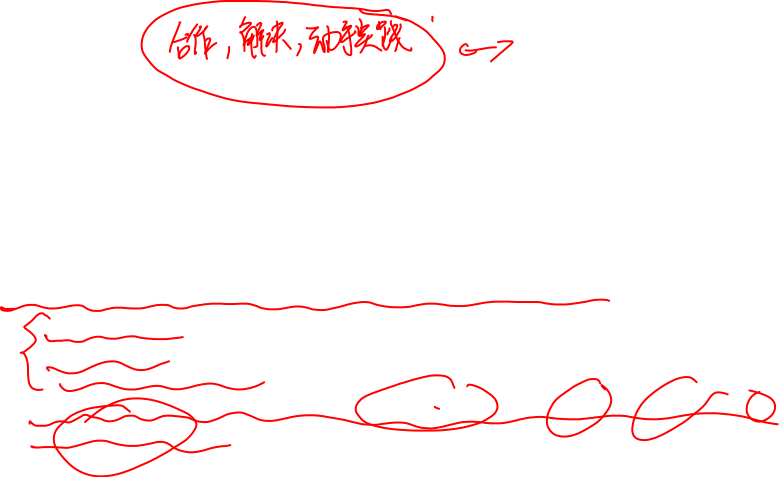 合作，解决，动手实践